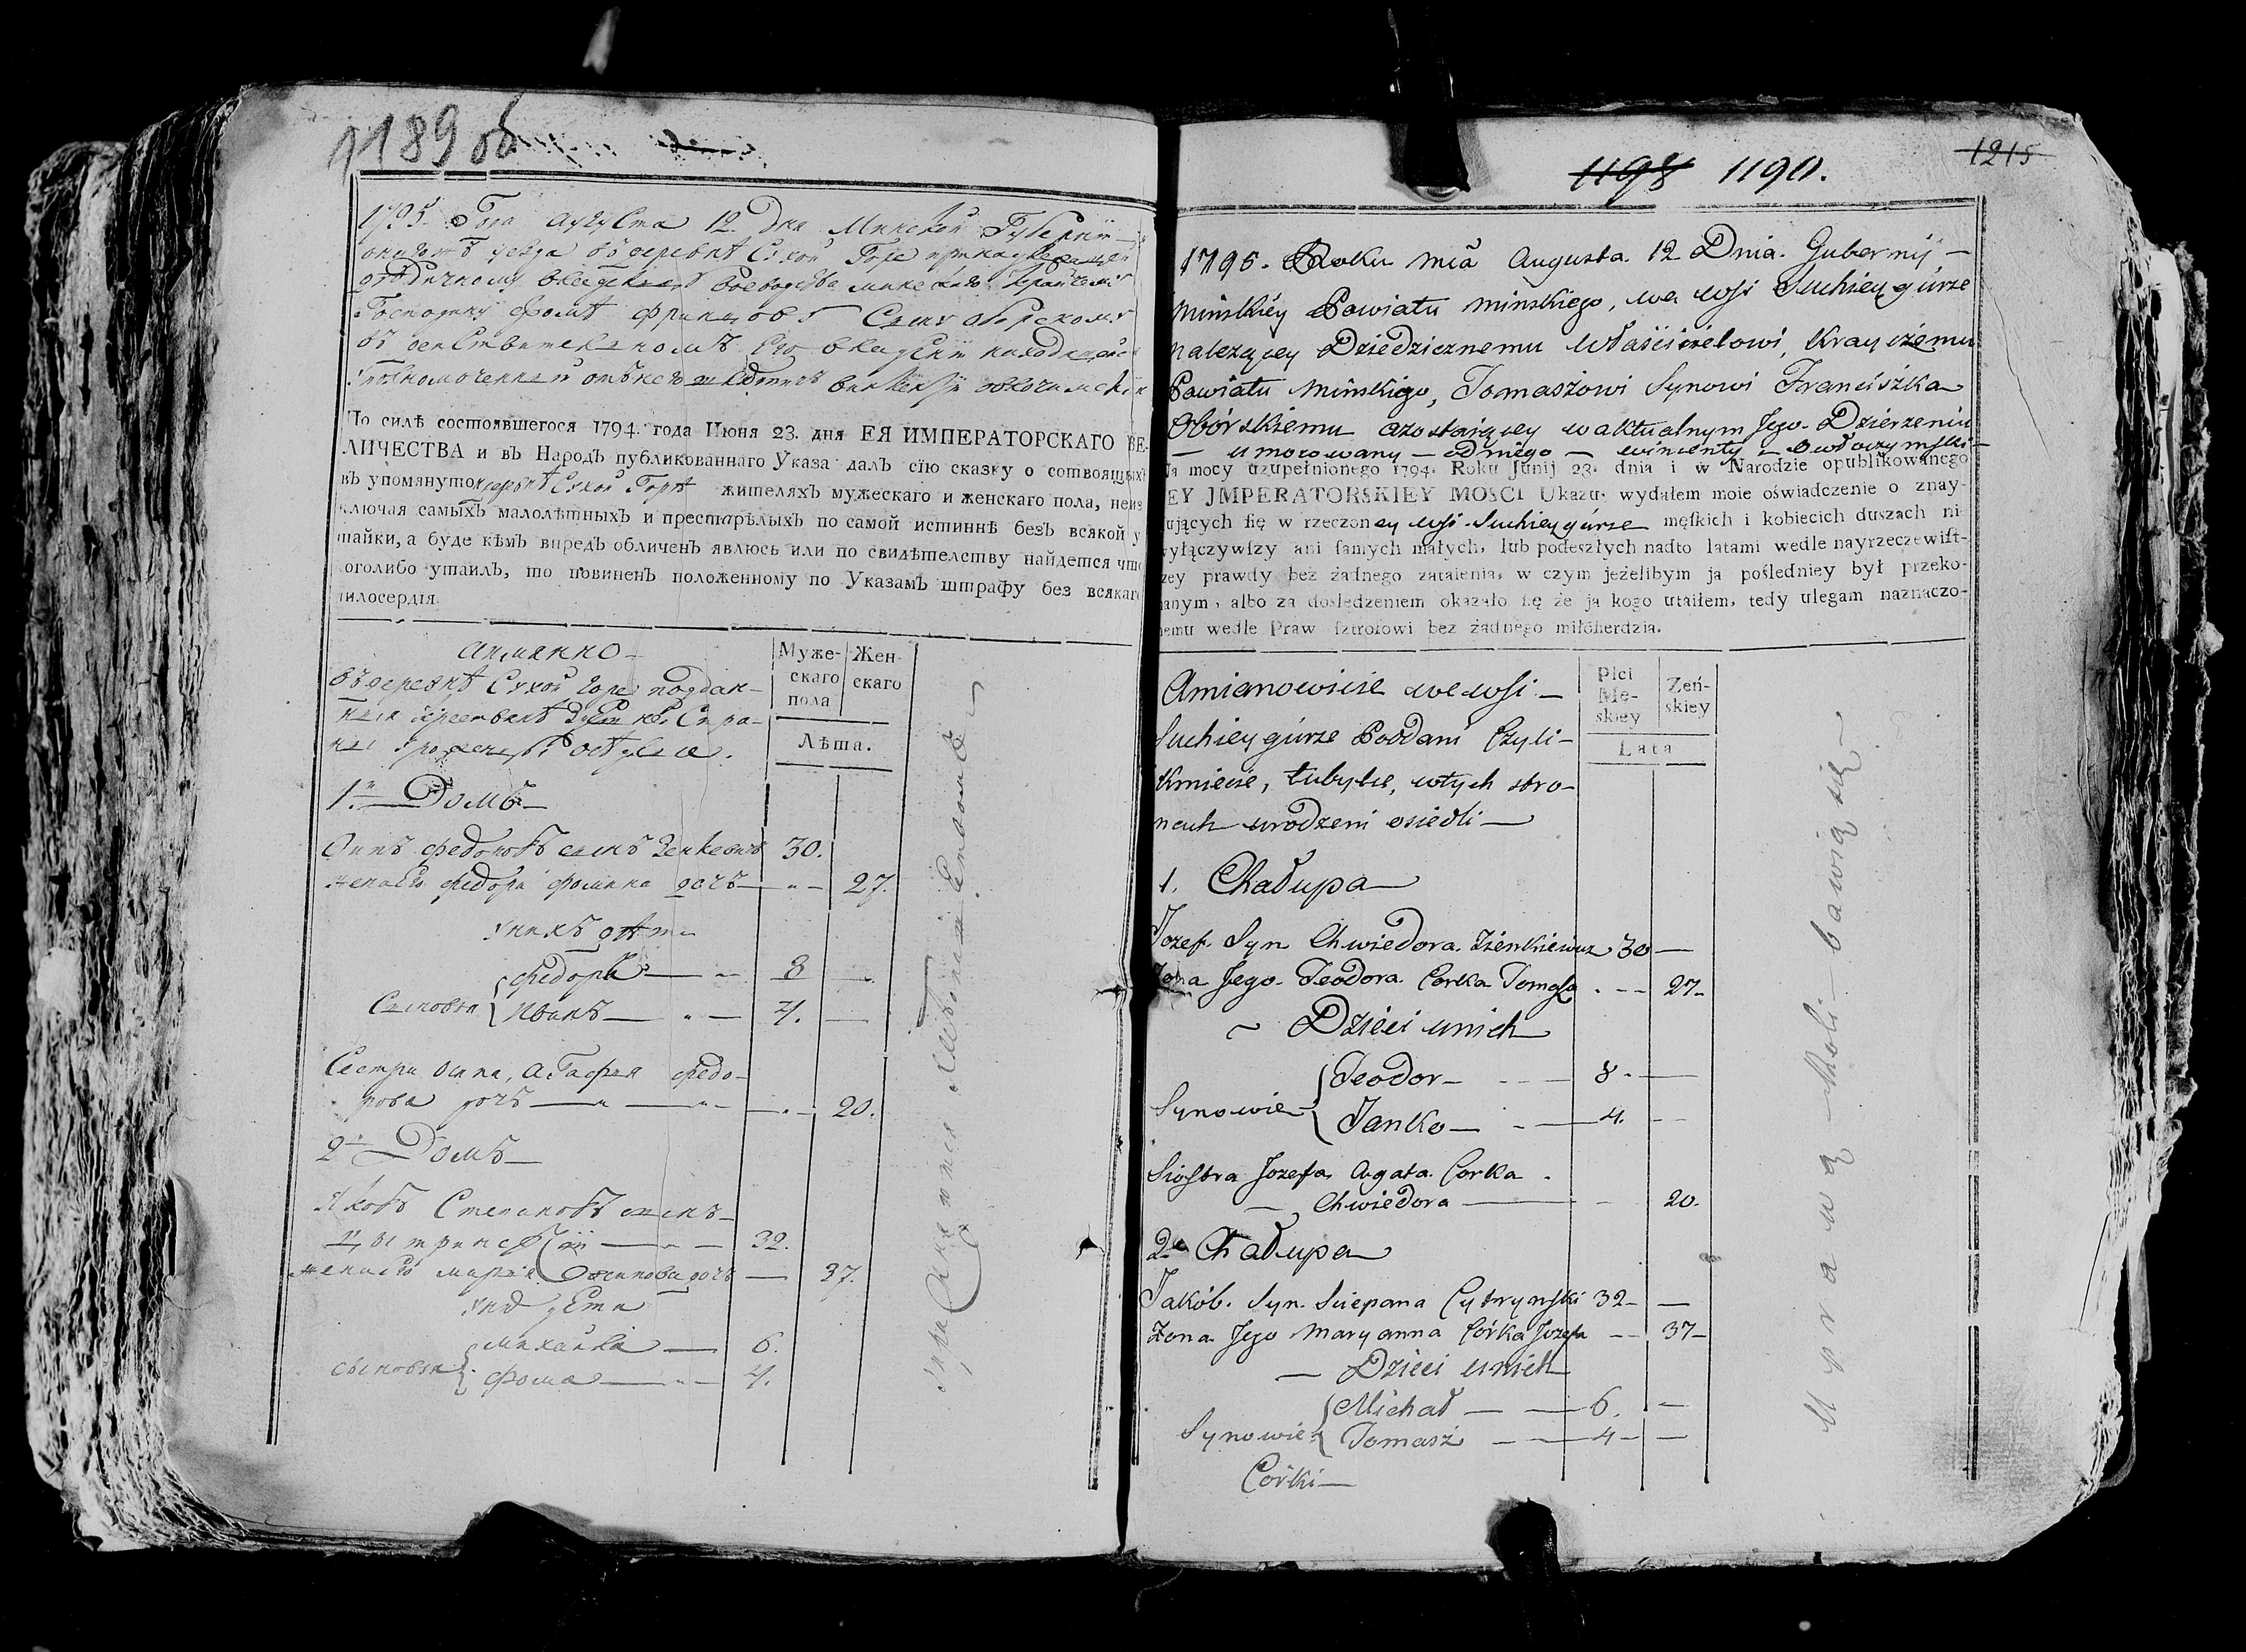 1189 об
1795. Года Августа 12. Дня Минской Губернїи
уезда въ деревнѣ Сухой Горе принадлежащей
воеводства минского Крайчему
Господину Фомѣ Францову Сыну Оборскому
въ действительномъ Его владенїи находящейся
Уполномоченный отъ него
По силѣ состоявшегося 1794. года Июня 23. дня ЕЯ ИМПЕРАТОРСКАГО ВЕ-
ЛИЧЕСТВА и въ Народъ публикованнаго Указа далъ сїю сказку о сотвоящыхъ
въ упомянутой деревнѣ Сухой Горѣ жителяхъ мужескаго и женскаго пола, неиз
ключая самыхъ малолѣтныхъ и престарѣлыхъ по самой истиннѣ безъ всякой у
тайки, а буде кѣмъ впредъ обличенъ явлюсь или по свидѣтелству найдется что
коголибо утаилъ, то повиненъ положенному по Указамъ штрафу без всякаго
милосердїя.
Аимянно
Муже-
скаго
пола
Жен-
скаго
Лѣта.
въ деревнѣ Сухой Горе поддан-
1й Домъ
Осипъ Федоровъ сынъ Зенкевичъ 30.
жена Его Федора Фомина дочь 27.
у нихъ дѣти
Сыновья { Федоръ 8
Иванъ 4.
Сестра Осипа, Агафья Федо-
рова дочь 20.
2й Домъ
Яковъ Степановъ сынъ
Цытринскїй 32.
жена Его Марья Осипова дочь 37.
у них дети
сыновья { Михайла 6.
Фома 4.
1198 1190.
1215
1795. Roku mca Augusta 12 Dnia. Gubernij
Minskiey Powiatu minskiego, we wsi Suchieygúrze
należącey Dziedzicznemu Właścicielowi, Krayczemu
Powiatu Minskigo, Tomaszowi Synowi Franciszka
Obórskiemu azostaiącey w aktualnym Jego Dzierzeniu
umocowany od niego winienty Owłoczymski
Na mocy uzupełnionego 1794. Roku Junij 23. dnia i w Narodzie opublikowanego
EY JMPERATORSKIEY MOSCI Ukazu, wydałem moie oświadczenie o znay-
dujących się w rzeczoney wsi Suchieygúrze męskich i kobiecich duszach ni
wyłączywszy ani samych małych, lub podeszłych nadto latami wedle nayrzeczewist-
szey prawdy bez żadnego zataienia, w czym jeżelibym ja pośledniey był przeko-
nanym, albo za dośledzeniem okazało się że ja kogo utaiłem, tedy ulegam naznaczo-
nemu wedle Praw sztrofowi bez żadnego miłosierdzia.
Amianowicie we wsi
Płci
Mę-
skiey
Zeń-
skiey
Lata
Suchieygúrze Poddani Czyli
Kmiecie, tubylce, wtych stro-
nach urodzeni osiedli
1. Chałupa
Jozef. Syn Chwiedora Zienkiewicz 30
Zona Jego. Teodora. Corka Tomasza 27
Dzieci unich
Synowie { Teodor 8
Janko 4.
Siostra Jozefa, Agata Corka
Chwiedora 20.
2a Chałupa
Jakób. Syn. Sciepana Cytrynski 32
Zona Jego Maryanna Córka Jozefa 37
Dzieci unich
Synowie { Michał 6.
Tomasz 4
Córki